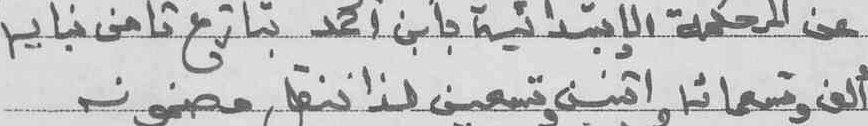 عن المحكمة الابتدائية بابن أحمد بتاريخ ثامن يناير
ألف وتسعمائة واثنين وتسعين لذا ننقل مضمونه